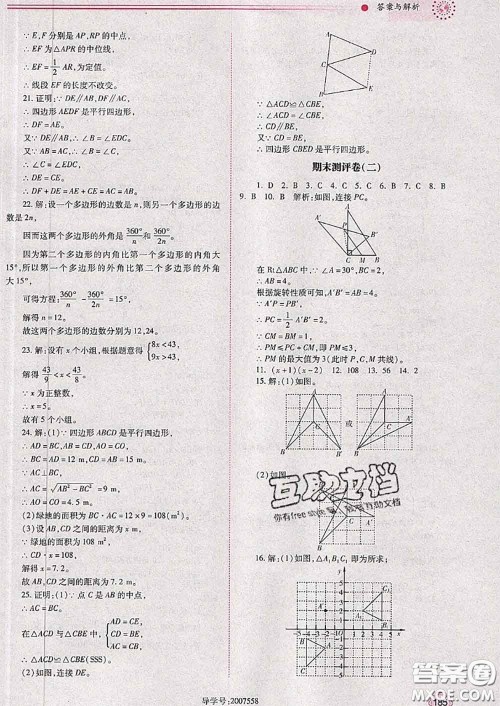 答案与解析
∵ E,F 分别是 AP,RP 的中点,
∴ EF 为△APR 的中位线,
∴ EF=1/2 AR,为定值.
∴ 线段 EF 的长度不改变.
21. 证明:∵ DE∥AB,DF∥AC,
∴ 四边形 AEDF 是平行四边形,
∴ DF=AE.
又∵ DE∥AB,∴ ∠B=∠EDC.
又∵ AB=AC,∴ ∠B=∠C,
∴ ∠C=∠EDC,
∴ DE=CE,
∴ DF+DE=AE+CE=AC=AB.
22. 解:设一个多边形的边数是 n,则另一个多边形的边
数是 2n,
因而这两个多边形的外角是 360°/n 和 360°/2n.
因为第二个多边形的内角比第一个多边形的内角大
15°,所以第一个多边形的外角比第二个多边形的外角
大 15°,
可得方程:360°/n-360°/2n=15°,
解得 n=12.
故这两个多边形的边数分别为 12,24.
23. 解:设有 x 个小组,根据题意得 {8x<43, 9x>43.
解得 43/9<x<43/8
∵ x 为正整数,
∴ x=5.
故有 5 个小组.
24. 解:(1)∵ 四边形 ABCD 是平行四边形,
∴ AD=BC,AB=CD,AO=CO.
∴ BC=AD=12 m,CD=AB=15 m,
∵ AC⊥BC,
∴ AC=√AB²-BC²=9 m,
∴ AO=CO=4.5 m.
(2)绿地的面积为 BC·AC=12×9=108(m²).
(3)设 AB,CD 之间的距离为 x m.
∵ 绿地的面积为 108 m²,
∴ CD·x=108,
解得 x=7.2.
故 AB,CD 之间的距离为 7.2 m.
25. 证明:(1)∵ 点 C 是 AB 的中点,
∴ AC=BC.
在△ACD 与△CBE 中,{AD=CE, CD=BE, AC=CB,
∴ △ACD≌△CBE(SSS).
(2)如图,连接 DE.
A
D
C
E
B
∵ △ACD≌△CBE,
∴ ∠ACD=∠CBE,
∴ CD∥BE,
又∵ CD=BE,
∴ 四边形 CBED 是平行四边形.
期末测评卷(二)
1. D 2. B 3. C 4. C 5. B 6. C 7. B 8. C
9. B 10. B 解析:如图,连接 PC.
在 Rt△ABC 中,∵ ∠A=30°,BC=2,
∴ AB=4.
根据旋转性质可知,A'B'=4.
∵ A'P=PB',
∴ PC=1/2 A'B'=2.
∵ PM≤PC+CM,即 PM≤3,
∴ PM 的最大值为 3(此时 P,C,M 共线).
11. (x+1)(x-2) 12. 108 13. 56 14. 2
15. 解:(1)如图.
或
(2)如图.
互助文档
16. 解:(1)如图,△A₁B₁C₁ 即为所求;
导学号:2007558
185
答案圈
MXQE.COM